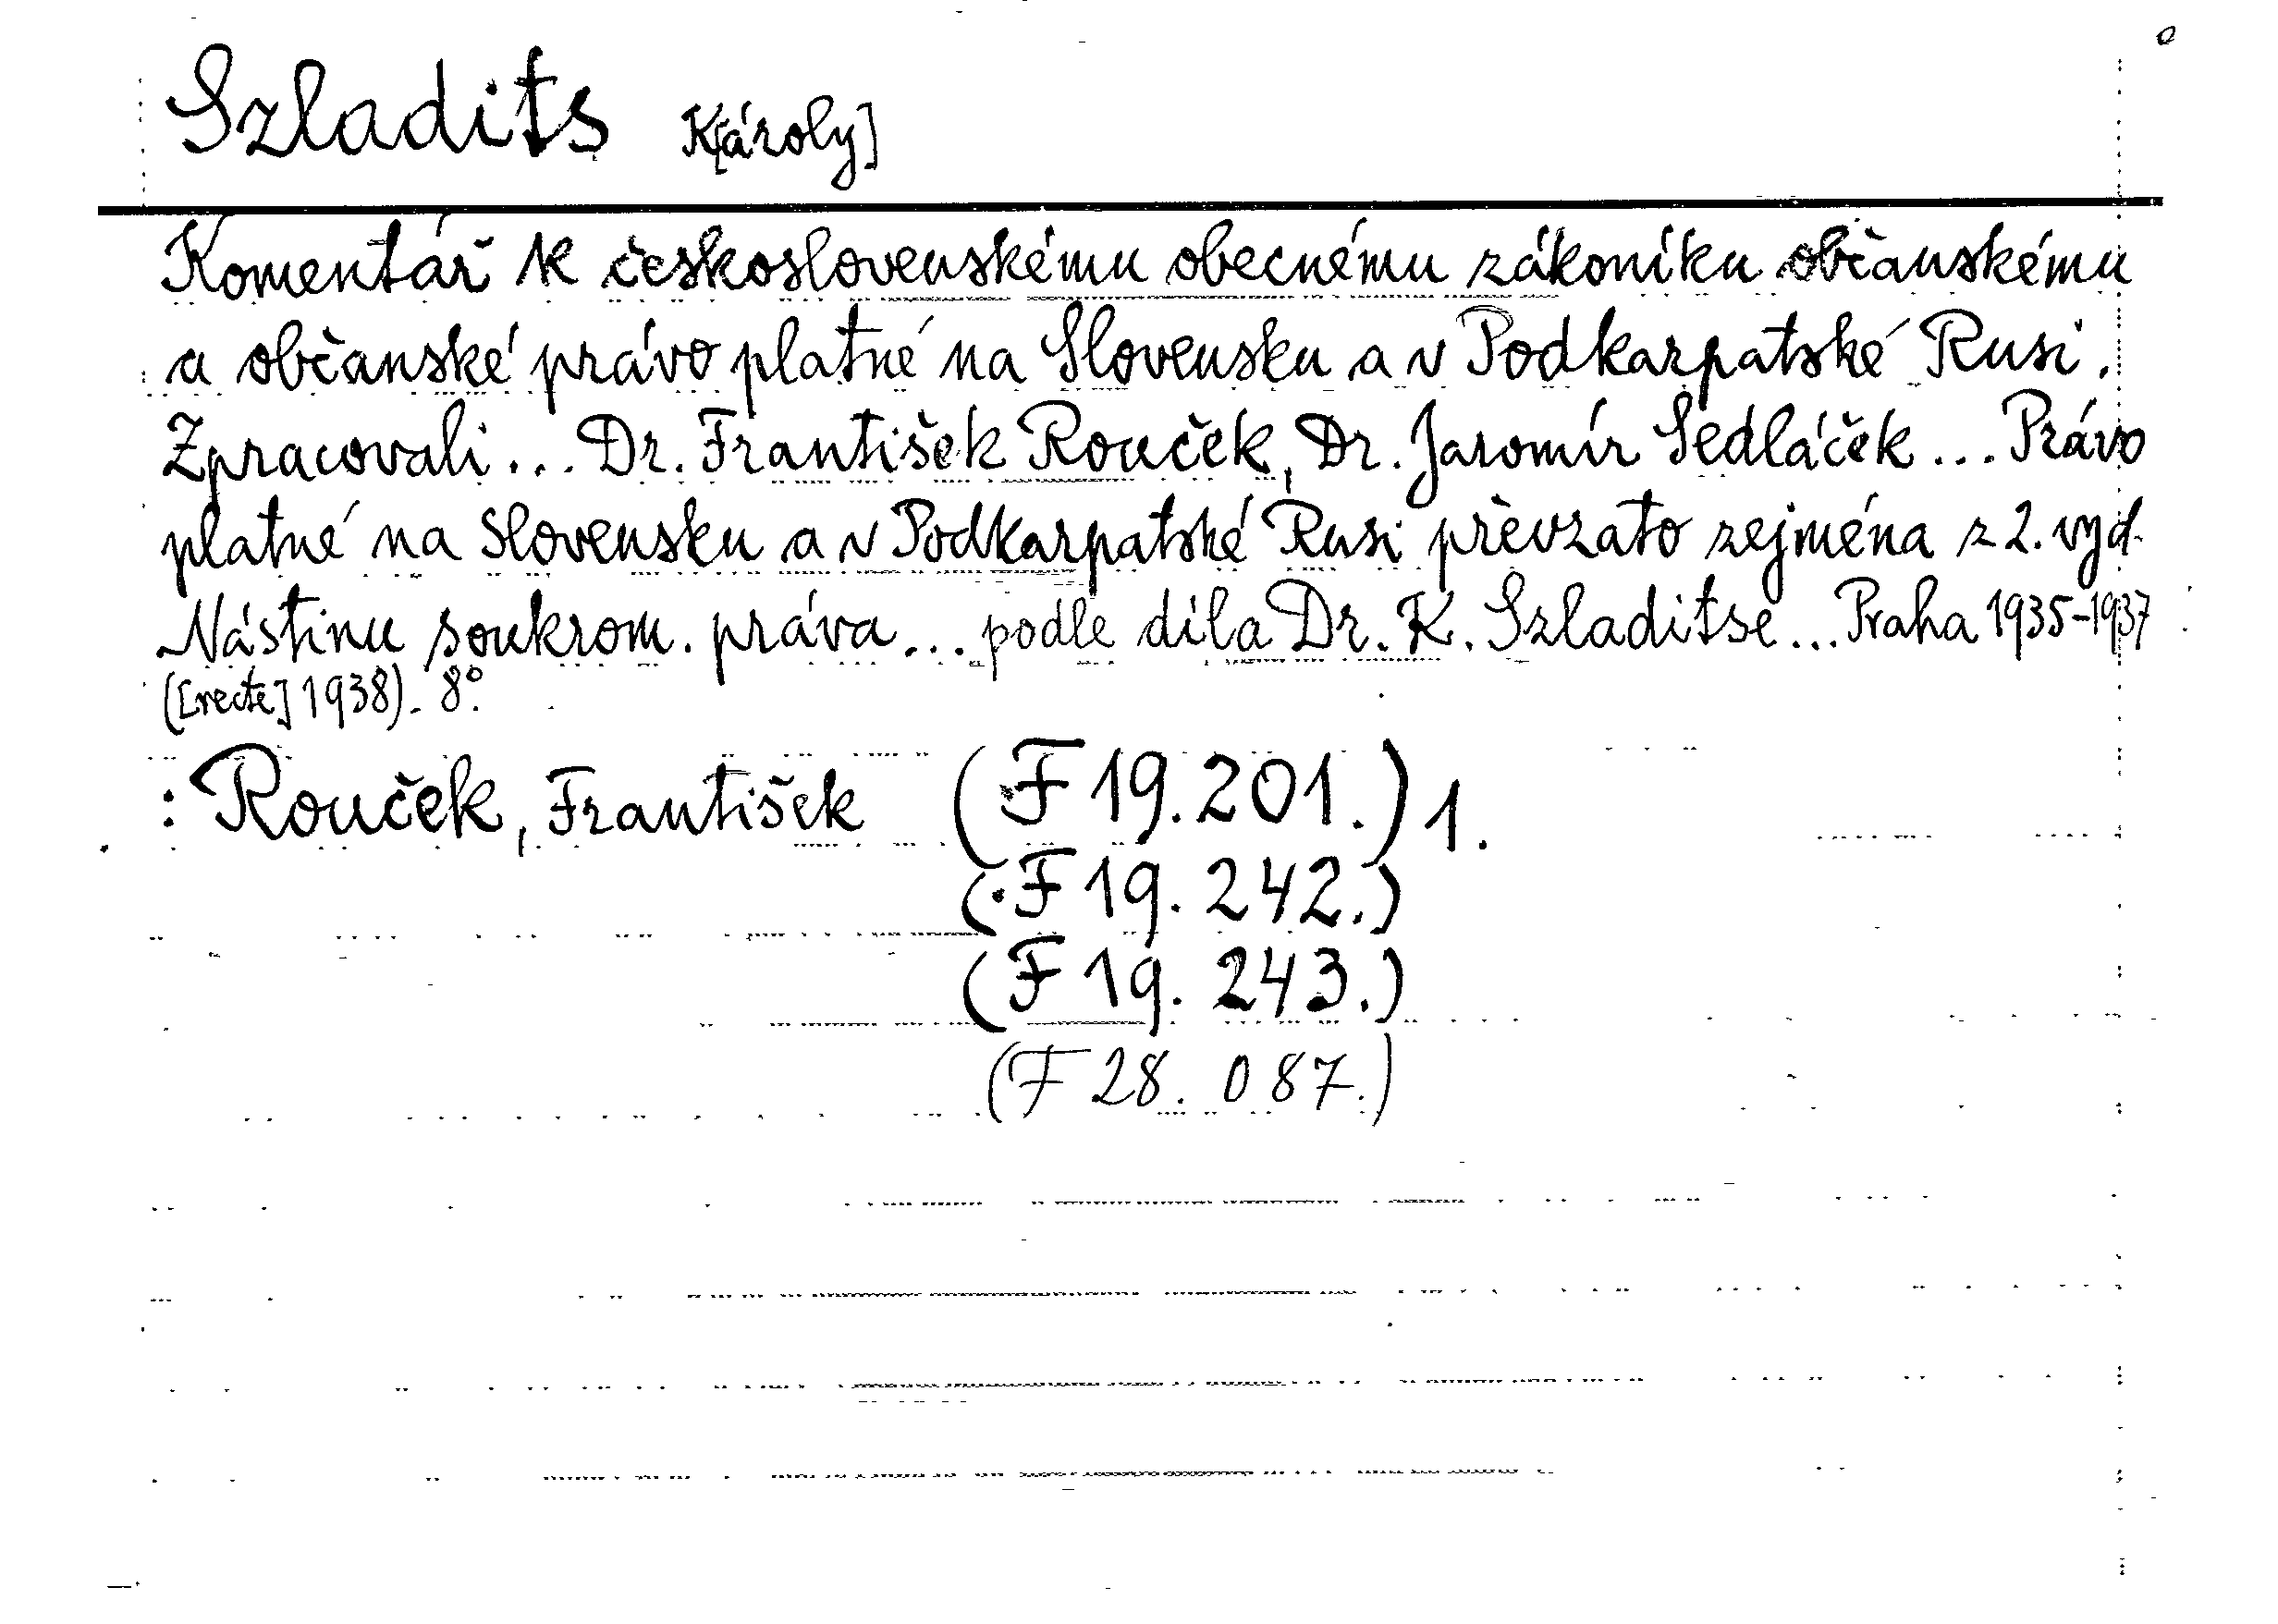 Szladits K[ároly]
Komentář k československému obecnému zákoníku občanskému
a občanské právo platné na Slovensku a v Podkarpatské Rusi.
Zpracovali... Dr. František Rouček, Dr. Jaromír Sedláček... Právo
platné na Slovensku a v Podkarpatské Rusi převzato zejména z 2. vyd.
Nástinu soukrom. práva... podle díla Dr. K. Szladitse... Praha 1935-1937
([recte] 1938). 8°.
: Rouček, František (F 19.201.) 1.
(F 19. 242.)
(F 19. 243.)
(F 28. 087.)